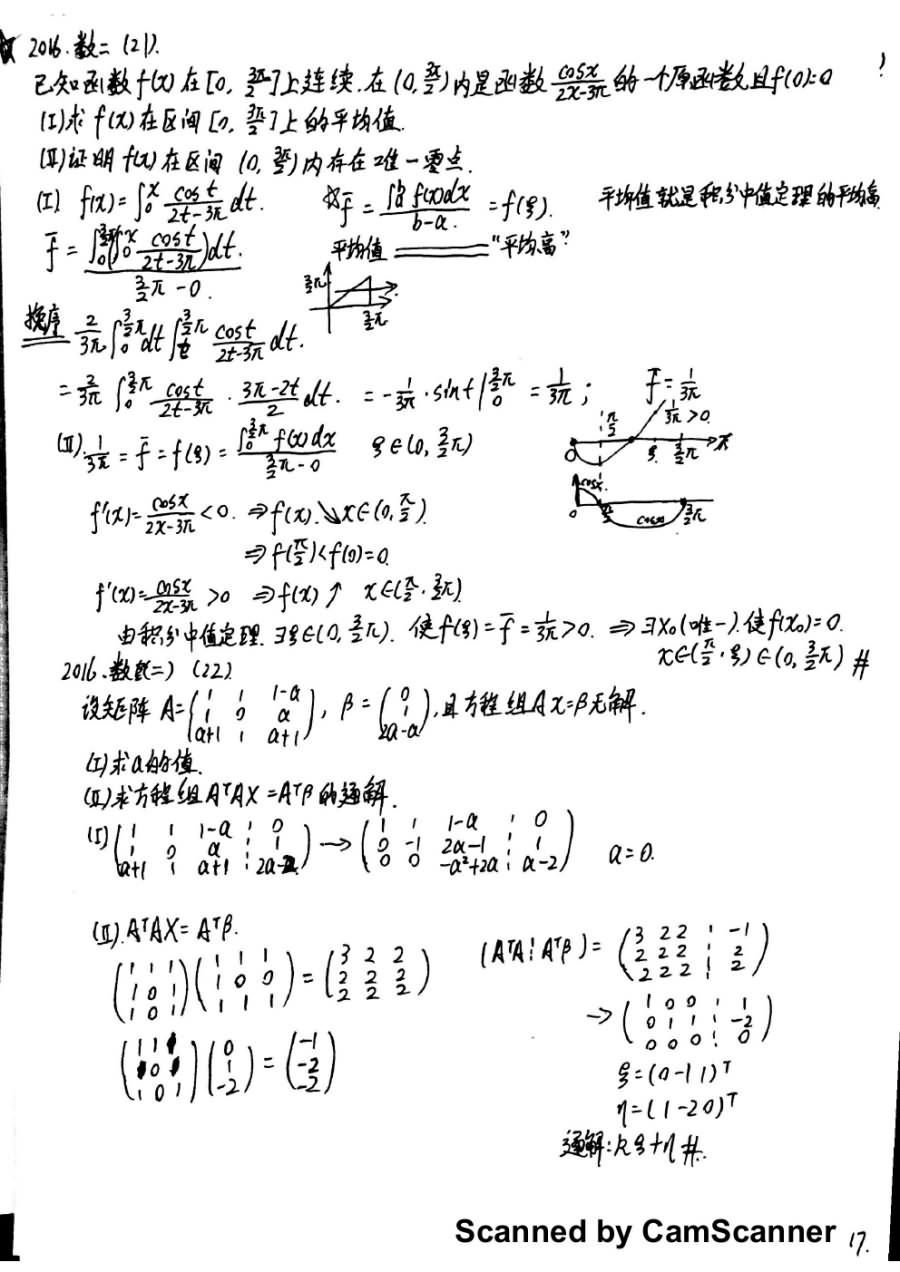 2016.数二(21).
已知函数f(x)在[0, 3π/2]上连续.在(0, 3π/2)内是函数 cosx/(2x-3π) 的一个原函数且f(0)=0
(I)求f(x)在区间[0, 3π/2]上的平均值.
(II)证明f(x)在区间(0, 3π/2)内存在唯一零点.
(I) f(x)=∫₀ˣ cost/(2t-3π) dt. f̄ = ∫ₐᵇ f(x)dx/(b-a) = f(ξ). 平均值就是积分中值定理的平均高
f̄ = ∫₀^(3π/2) (∫₀ˣ cost/(2t-3π))dt. / (3/2π-0) 平均值 "平均高"
3/2π 3/2π
换序 2/3π ∫₀^(3/2π) dt ∫ₜ^(3/2π) cost/(2t-3π) dt.
= 2/3π ∫₀^(3/2π) cost/(2t-3π) · (3π-2t)/2 dt. = -1/3π · sint |₀^(3/2π) = 1/3π ; f̄=1/3π
(II). 1/3π = f̄ = f(ξ) = ∫₀^(3/2π) f(x)dx/(3/2π-0) ξ∈(0, 3/2π)
π/2 1/3π>0. 0 ξ 3/2π
f'(x)= cosx/(2x-3π) <0. ⇒f(x).↘x∈(0, π/2).
cosx 0 π/2 cosx 3/2π
⇒f(π/2)<f(0)=0.
f'(x)= cosx/(2x-3π) >0 ⇒f(x)↑ x∈(π/2. 3/2π)
由积分中值定理.∃ξ∈(0, 3/2π). 使f(ξ)=f̄=1/3π>0. ⇒∃x₀(唯一).使f(x₀)=0.
x∈(π/2.ξ)∈(0, 3/2π) #
2016.数二) (22)
设矩阵 A=(1 1 1-a; 1 0 a; a+1 1 a+1), β=(0; 1; 2a-a),且方程组Ax=β无解.
(I)求a的值.
(II)求方程组AᵀAX=Aᵀβ的通解.
(I) (1 1 1-a ⋮ 0; 1 0 a ⋮ 1; a+1 1 a+1 ⋮ 2a-2) → (1 1 1-a ⋮ 0; 0 -1 2a-1 ⋮ 1; 0 0 -a²+2a ⋮ a-2) a=0.
(II).AᵀAX=Aᵀβ.
(1 1 1; 1 0 1; 1 0 1)(1 1 1; 1 0 0; 1 1 1)=(3 2 2; 2 2 2; 2 2 2)
(AᵀA⋮Aᵀβ)=(3 2 2 ⋮ -1; 2 2 2 ⋮ 2; 2 2 2 ⋮ 2)
→(1 0 0 ⋮ 1; 0 1 1 ⋮ -2; 0 0 0 ⋮ 0)
(1 1 1; 1 0 1; 1 0 1)(0; 1; -2)=(-1; -2; -2)
ξ=(0 -1 1)ᵀ
η=(1 -2 0)ᵀ
通解:kξ+η #.
Scanned by CamScanner 17.